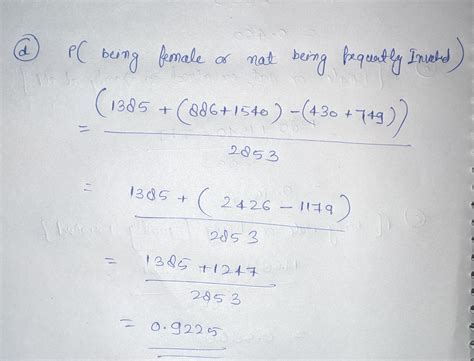 (d) P( being female or not being frequently Involved)
= (1385 + (886+1540) - (430 + 749))
2853
= 1385 + ( 2426 - 1179)
2853
= 1385 + 1247
2853
= 0.9225